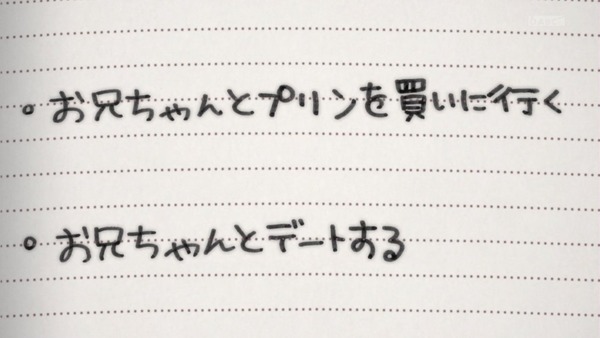 。お兄ちゃんとプリンを買いに行く
。お兄ちゃんとデートする